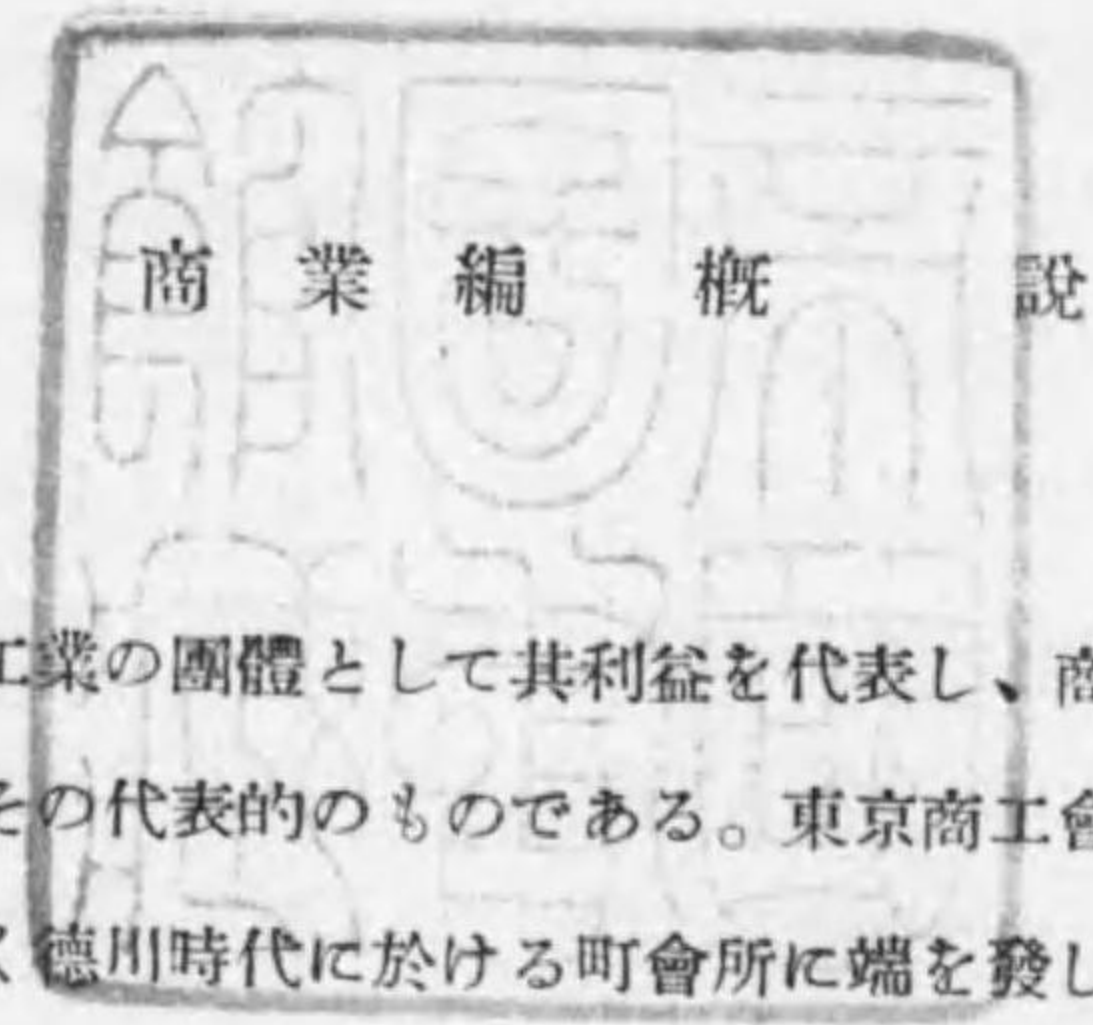 商業編概説
工業の團體として共利益を代表し、商
その代表的のものである。東京商工會
德川時代に於ける町會所に端を發し